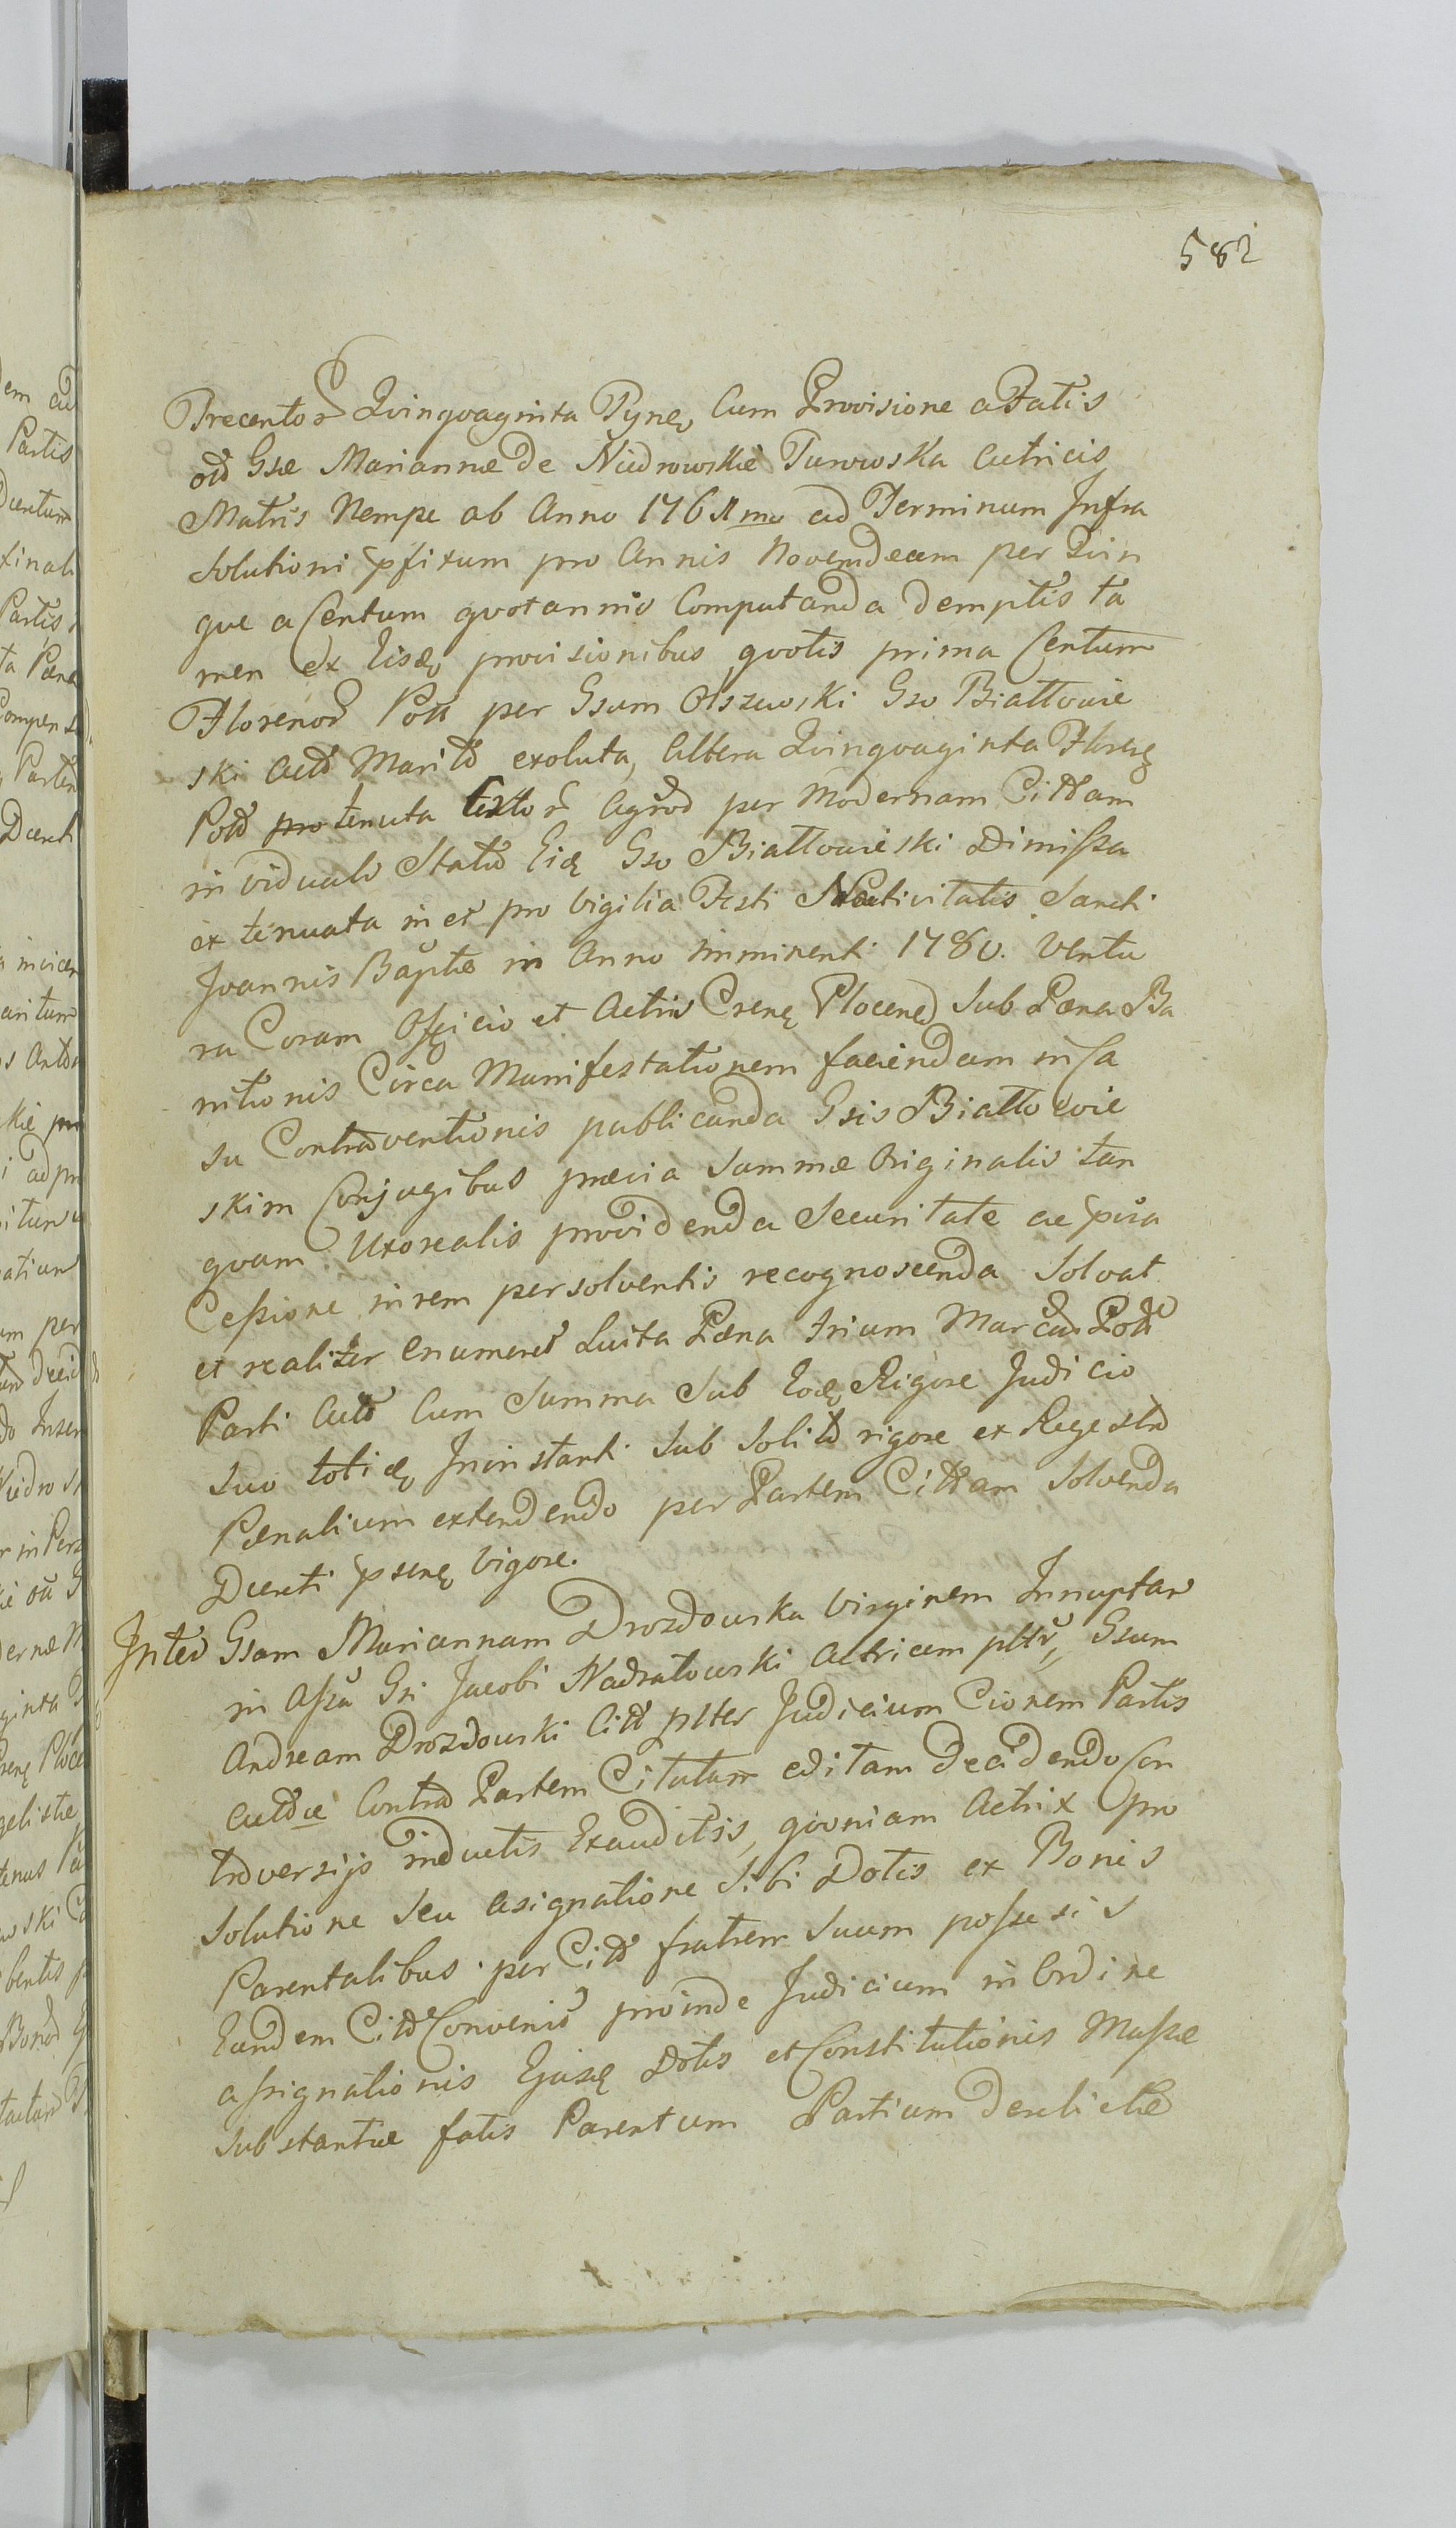 582
Trecentor Qvingvaginta Tynę Cum Provisione a Fatis
od Gsæ Mariannæ De Niedrowskie Turowska Actricis
Matris Nempe ab Anno 1761mo ad Terminum Infra
Solutioni pfixum pro Annis Novemdecem per Qvin
que a Centum qvotannis Computanda Demptis ta
men ex Eisdę provisionibus qvotis prima Centum
Florenor Poll per Gsum Olszewski Gso Biattowie
ski Acto Marito exoluta, Altera Qvingvaginta Florenę
Poll pro tenuta Agror per Modernam Cittam
in viduali Statu Eidę Gso Biattowieski Dimissa
extenuata in et pro Vigilia Festi Nativitatis Sancti
Joannis Baptæ in Anno imminenti 1780. Ventu
ra Coram Officio et Actis Crenę Plocenę Sub Pæna Ba
nitionis Circa Manifestationem faciendam in Ca
su Contraventionis publicanda Gsis Biattowie
skim Conjugibus prævia Summæ Originalis tan
qvam Uxorealis providenda Securitate ac pvia
Cessione in rem persolventis recognoscenda Solvat
et realiter enumeret Luita Pæna trium Marcar Poll
Parti Actæ Cum Summa Sub Eodę Rigore Judicio
Suo totidę Ininstanti Sub Solito rigore ex Regestro
Pænalium extendendo per Partem Cittam Solvenda
Decreti psenę Vigore.
Inter Gsam Mariannam Drozdowska Virginem Innuptam
in Assa Gsi Jacobi Nadratowski Actricem pltr, Gsum
Andream Drozdowski Citt plter Judicium Cionem Partis
Actæ Contra Partem Citatam editam Decidendo Con
troversijs inductis Exauditis, qvoniam Actrix pro
Solutione Seu Asignatione Sibi Dotis ex Bonis
Parentalibus per Citt fratrem Suum possesis
Eundem Citt Convenit proinde Judicium in Ordine
assignationis Ejusdę Dotis et Constitutionis Massæ
Substantiæ fatis Parentum Partium Derelictæ